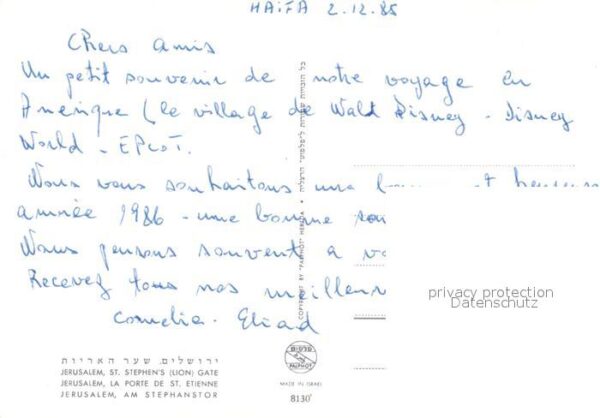 HAIFA 2.12.85
Chers amis
Un petit souvenir de notre voyage en
Amérique (le village de Walt Disney - Disney
World - EPCOT.
Nous vous souhaitons une et heureuse
année 1986 - une bonne
Nous pensons souvent a
Recevez tous nos meilleur
Cornelia - Eliad
privacy protection
Datenschutz
ירושלים, שער האריות
JERUSALEM, ST. STEPHEN'S (LION) GATE
JERUSALEM, LA PORTE DE ST. ETIENNE
JERUSALEM, AM STEPHANSTOR
COPYRIGHT BY "PALPHOT" HERZLIA
כל הזכויות שמורות לפלפוט הרצליה
PALPHOT
MADE IN ISRAEL
8130